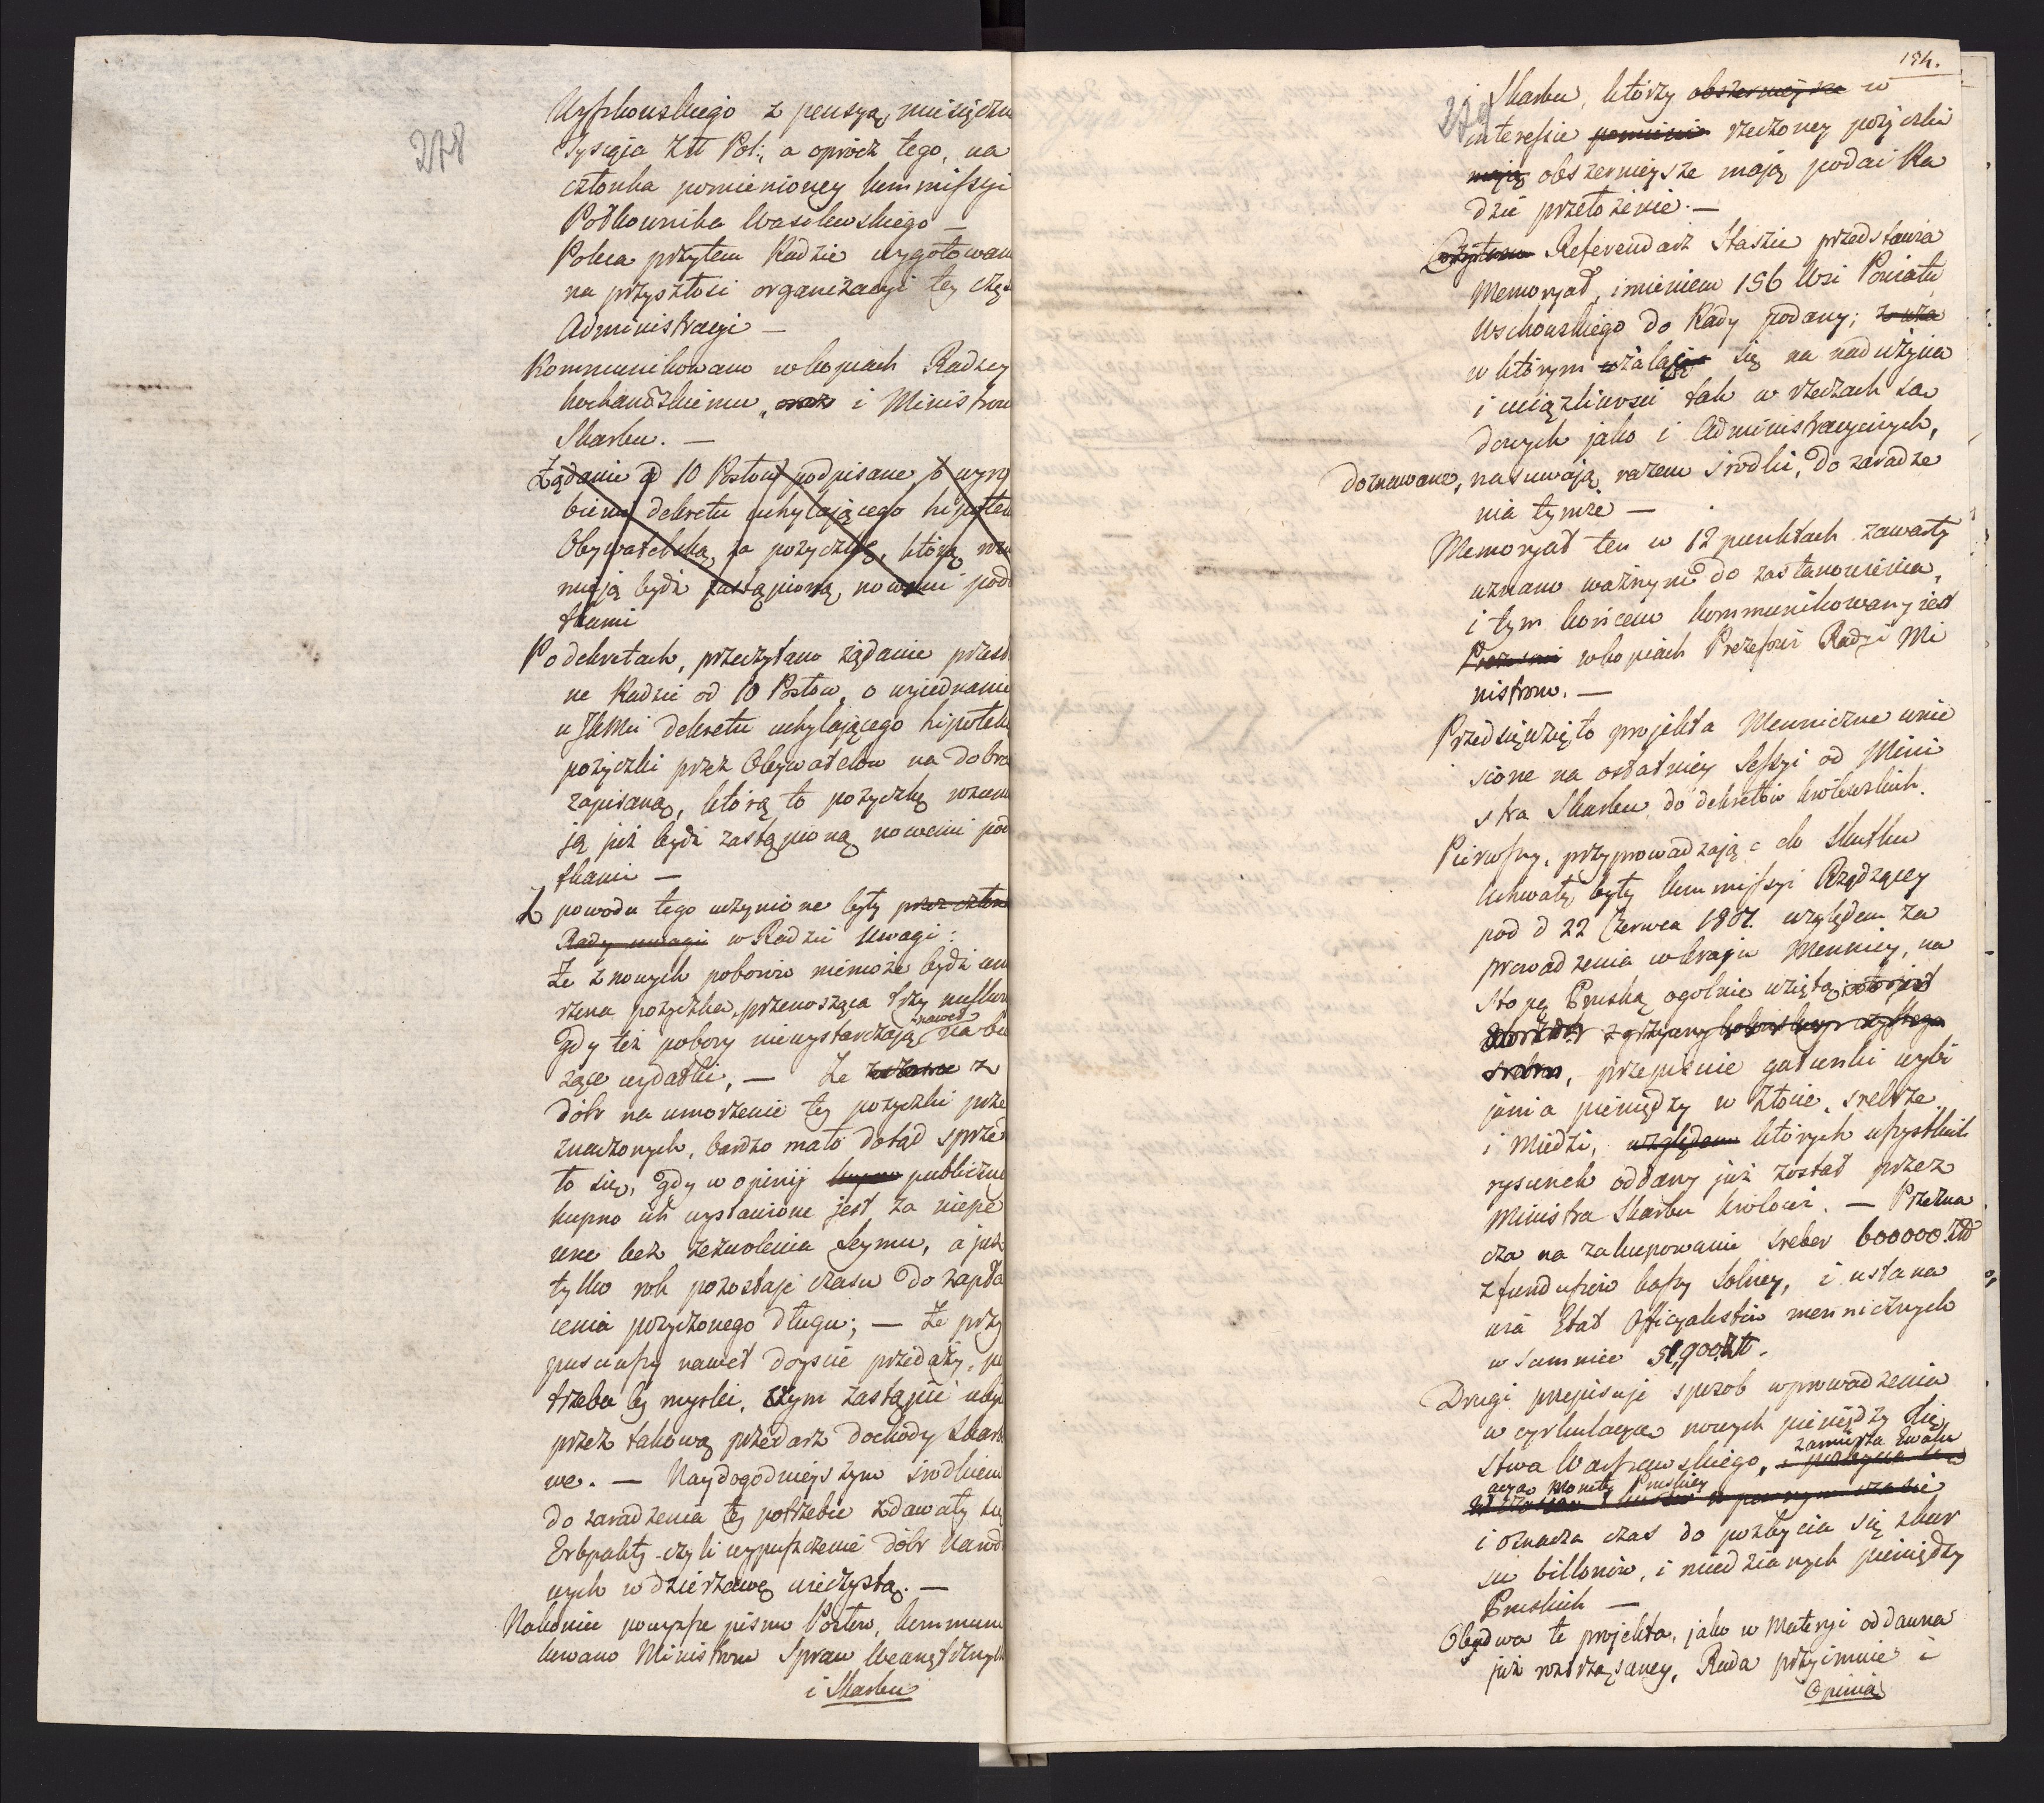 278
Wyszkowskiego z pensyą miesięczn
Tysiąca Złł Pol:, a oprócz tego, na
członka pomienionéy kommissyi
Półkownika Wasilewskiego —
Poleca przytem Radzie wygotowan
na przyszłość organizacyi téy częś
Administracyi —
Kommunikowano w kopiach Radzcy
Kochanowskiemu, oraz i Ministrow
Skarbu. —
Żądanie od 10 Posłow podpisane, o wyro
bienie dekretu uchylaiącego hipotek
Obywatelską, za pożyczkę, którą rozu
mieją bydź zastąpioną nowemi poda
tkami
Po dekretach, przeczytano żądanie przesła
ne Radzie od 10 Posłow, o wyiednanie
u JKMci dekretu uchylaiącego hipoteke
pożyczki przez Obywatelow na dobra
zapisaną, którą to pożyczkę rozumi
ją już bydź zastąpioną nowemi poda
tkami —
Z powodu tego uczynione były przez człon
Rady uwagi w Radzie Uwagi:
Że z nowych poborów niemoże bydź umo
rzona pożyczka, przenosząca trzy miliony
gdy też pobory niewystarczaią nawet na bie
żące wydatki, — Że z
dóbr na umorzenie téy pożyczki prze
znaczonych, bardzo mało dotąd sprzeda
to się, gdy w opinij kupno publiczné
kupno ich wystawione jest za niepe
wne bez zezwolenia Seymu, a już
tylko rok pozostaje czasu do zapła
cenia pożyczonego długu; — Że przy
puściwszy nawet doyście przedaży, po
trzeba by myśleć, czym zastąpić ubyłe
przez takową przedarz dochody skarbo
we. — Naydogodnieyszym środkiem
do zaradzenia téy potrzebie zdawały się
Erbpakty czyli wypuszczenie dóbr Narodo
wych w dzierżawę wieczystą. —
Nakoniec powyższe pismo Posłow, kommuni
kowano Ministrom Spraw Wewnętrznych
i Skarbu
194.
279
i Skarbu, którzy obszernieysze w
interessie pomienio rzeczonéy pożyczki
mają obszernieysze mają podać Ra
dzie przełożenie. —
Referendarz Staszic przedstawia
Memoryał, imieniem 156 Wsi Powiatu
Wschowskiego do Rady podany;
w którym użalaią się na nadużycia
i uciążliwości tak w rzeczach są
dowych jako i Administracyinych,
doznawane, nasuwają razem środki, do zaradze
nia tymże —
Memoryał ten w 12 punktach zawarty
uznano ważnym do zastanowienia,
i tym końcem kommunikowany jest
w kopiach Prezessowi Rady i Mi
nistrom. —
Przedsięwzięto projekta Menniczne wnie
sione na ostatniéy Sessyi od Mini
stra Skarbu do dekretów królewskich.
Pierwszy, przyprowadzając do skutku
Uchwałę byłéy kommissyi Rządzącéy
pod d 22 Czerwca 1807. względem za
prowadzenia w kraju Mennicy, na
stopę Pruską ogolnie wziętą, to jest
z grzywny kolońskiey czystego
srebra, przepisuie gatunki wybi
jania pieniędzy w złocie, srebrze
i Miedzi, względem których wszystkich
rysunek oddany już został przez
Ministra Skarbu królowi. — Przezna
cza na zakupowanie sreber 600000 Złł
z funduszów kassy Solnéy, i ustana
wia Etat Officyalistów mennicznych
w summie 51,900 Zł.
Drugi przepisuje sposob wprowadzenia
w cyrkulacyę nowych pieniędzy Xię
stwa Warszawskiego, zamierza Ewalu
acya Monety Pruskiéy
i oznacza czas do pozbycia się zbior
su billonów, i miedzianych pieniędzy
Pruskich —
Obydwa te projekta, jako w Materyi oddawna
już roztrząsanéy, Rada przyimuie i
Opinią